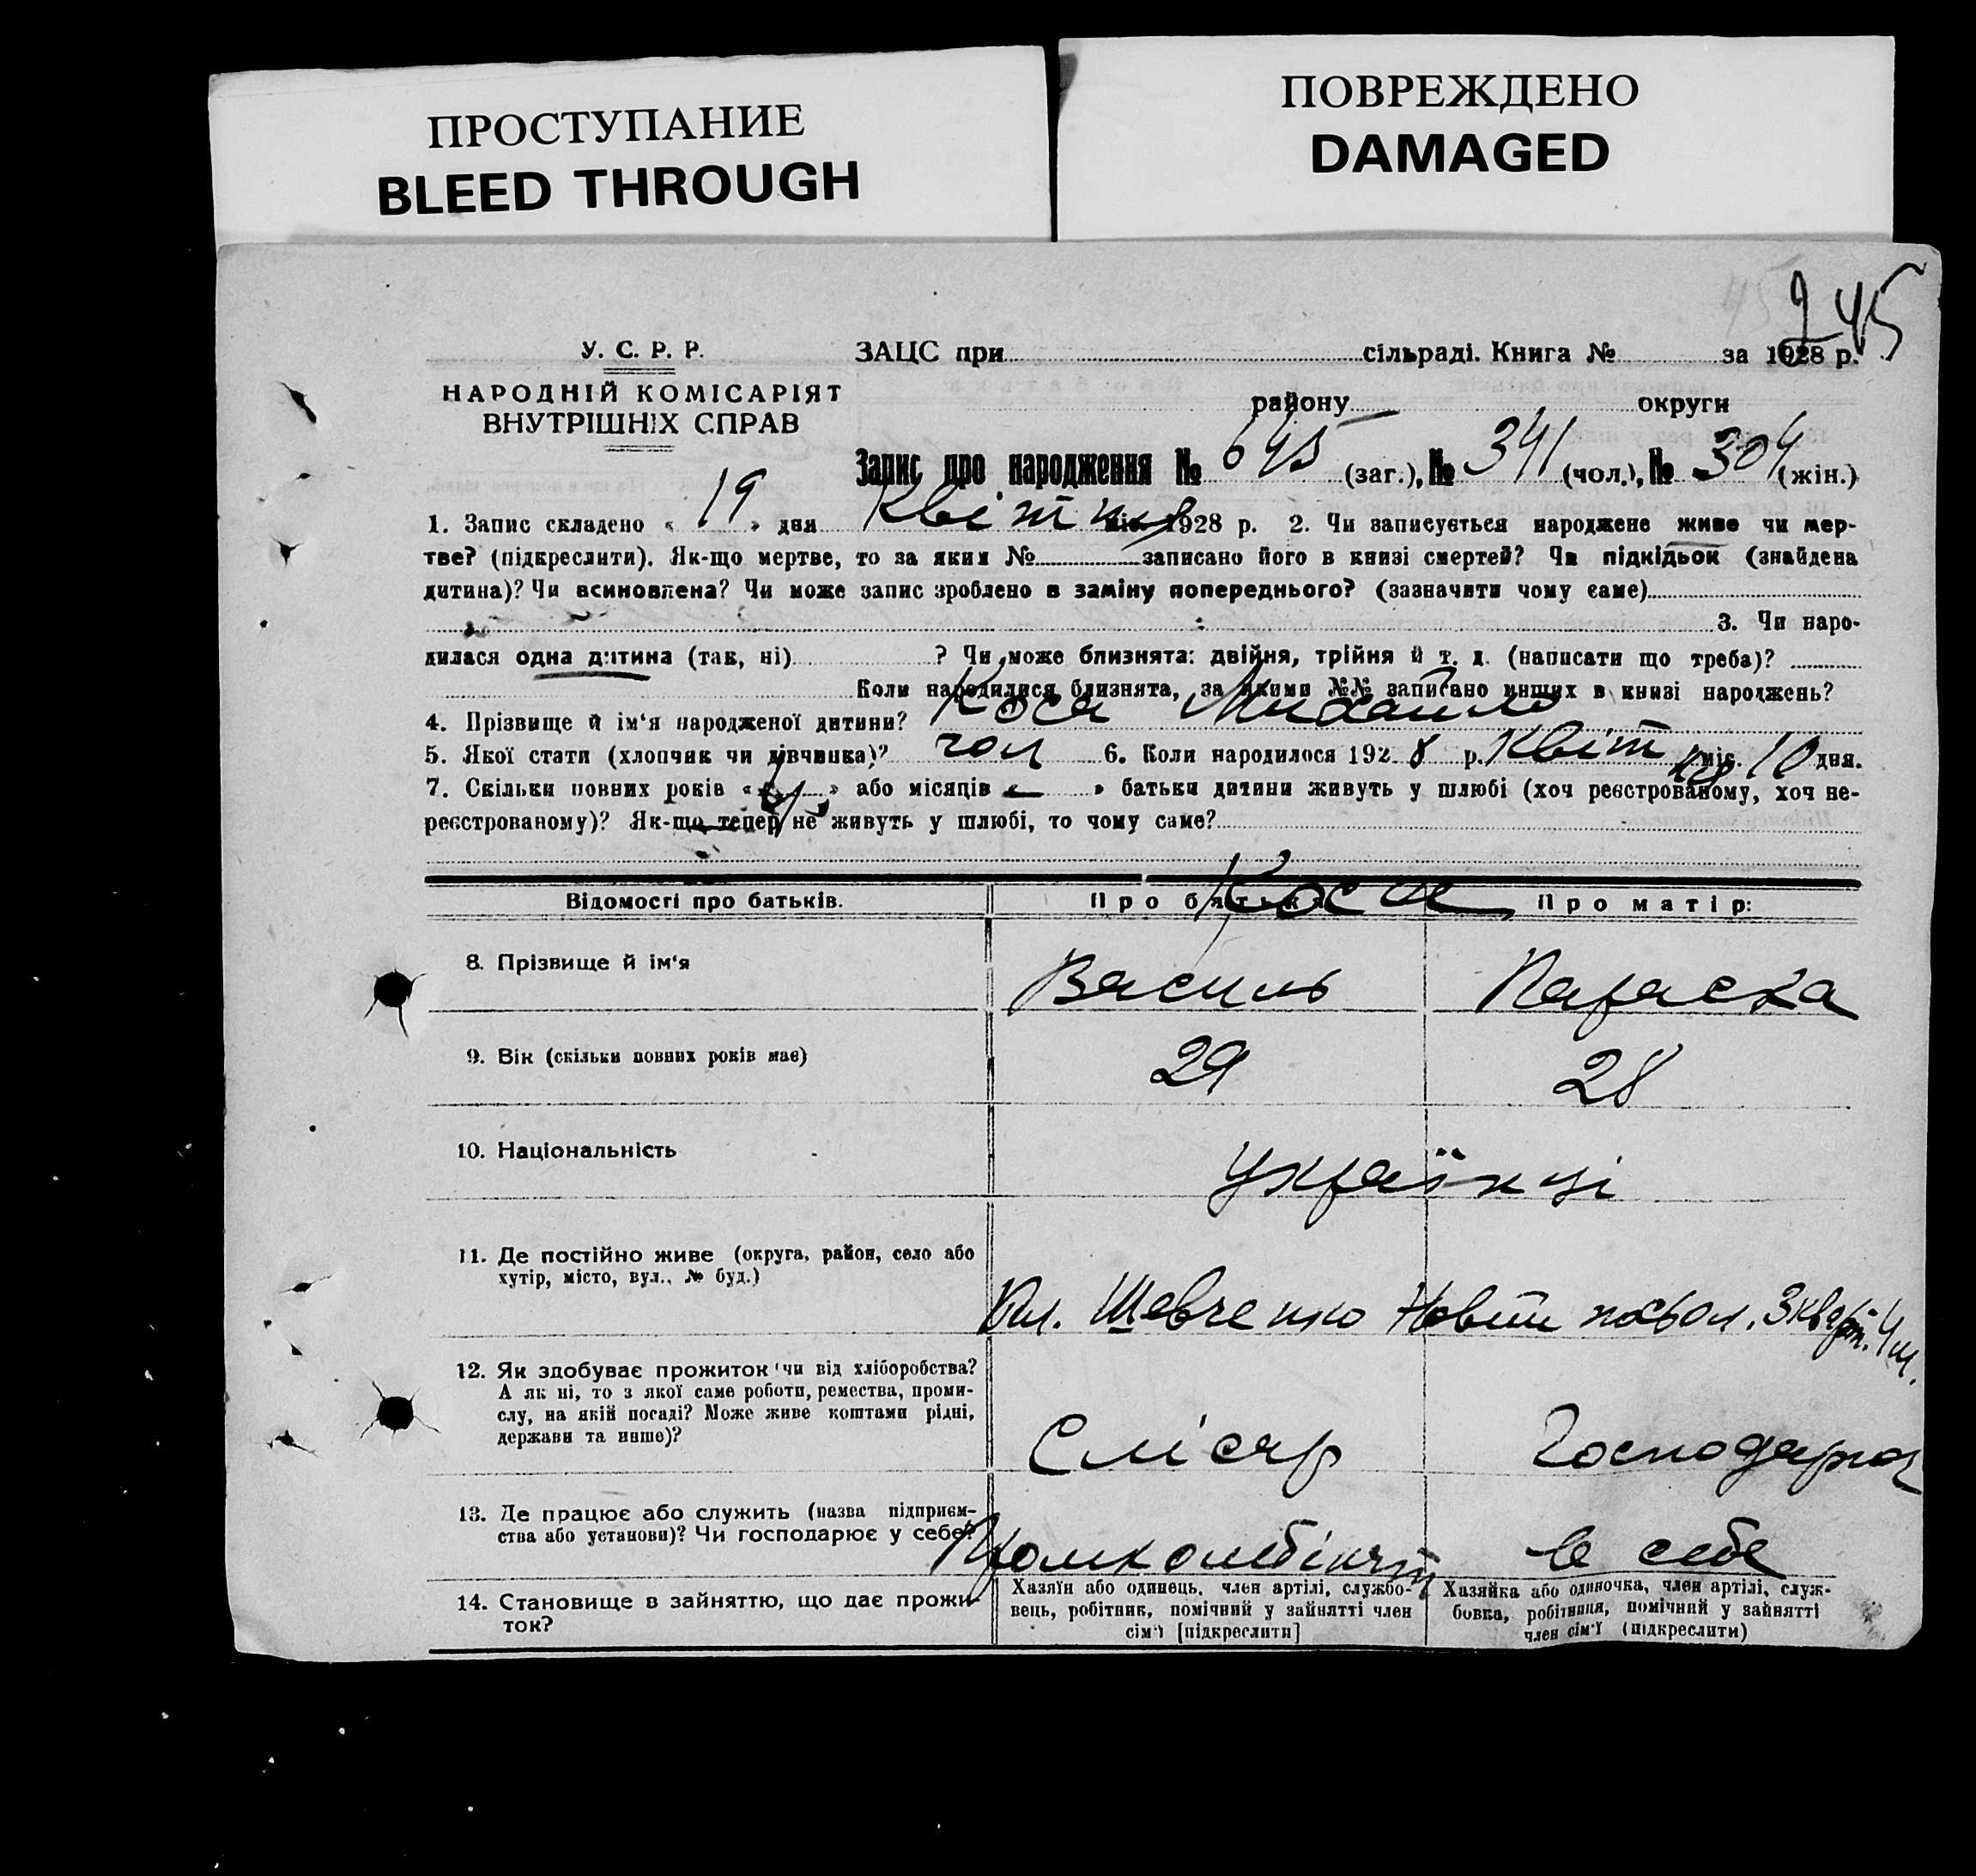 ПРОСТУПАНИЕ
BLEED THROUGH
ПОВРЕЖДЕНО
DAMAGED
245
У. С. Р. Р.
НАРОДНІЙ КОМІСАРІЯТ
ВНУТРІШНІХ СПРАВ
ЗАЦС при сільраді. Книга № за 1928 р.
району округи
Запис про народження № 645 (заг.), № 341 (чол.), № 304 (жін.)
1. Запис складено « 19 » дня Квітня міс. 1928 р. 2. Чи записується народжене живе чи мер-
тве? (підкреслити). Як-що мертве, то за яким № записано його в книзі смертей? Чи підкідьок (знайдена
дитина)? Чи всиновлена? Чи може запис зроблено в заміну попереднього? (зазначити чому саме)
3. Чи наро-
дилася одна дитина (так, ні) ? Чи може близнята: двійня, трійня й т. д. (написати що треба)?
Коли народилися близнята, за якими №№ записано инших в книзі народжень?
4. Прізвище й ім‘я народженої дитини? Коса Михайло
5. Якої стати (хлопчик чи дівчинка)? чол 6. Коли народилося 1928 р. Квітня міс. 10 дня.
7. Скільки повних років « 4 » або місяців « — » батьки дитини живуть у шлюбі (хоч реєстрованому, хоч не-
реєстрованому)? Як-що тепер не живуть у шлюбі, то чому саме?
Відомості про батьків. Про батька Про матір:
Коса
8. Прізвище й ім‘я Василь Параска
9. Вік (скільки повних років має) 29 28
10. Національність Українці
11. Де постійно живе (округа, район, село або
хутір, місто, вул., № буд.)
Шевченко Новий посьол. 3 кварт. 4
12. Як здобуває прожиток чи від хліборобства?
А як ні, то з якої саме роботи, ремества, проми-
слу, на якій посаді? Може живе коштами рідні,
держави та инше)?
Слісар Господарка
13. Де працює або служить (назва підприєм-
ства або установи)? Чи господарює у себе?
Промкомбінат в себе
14. Становище в зайняттю, що дає прожи-
ток?
Хазяїн або одинець, член артілі, службо-
вець, робітник, помічний у зайнятті член
сім'ї [підкреслити]
Хазяйка або одиночка, член артілі, служ-
бовка, робітниця, помічний у зайнятті
член сім'ї (підкреслити)